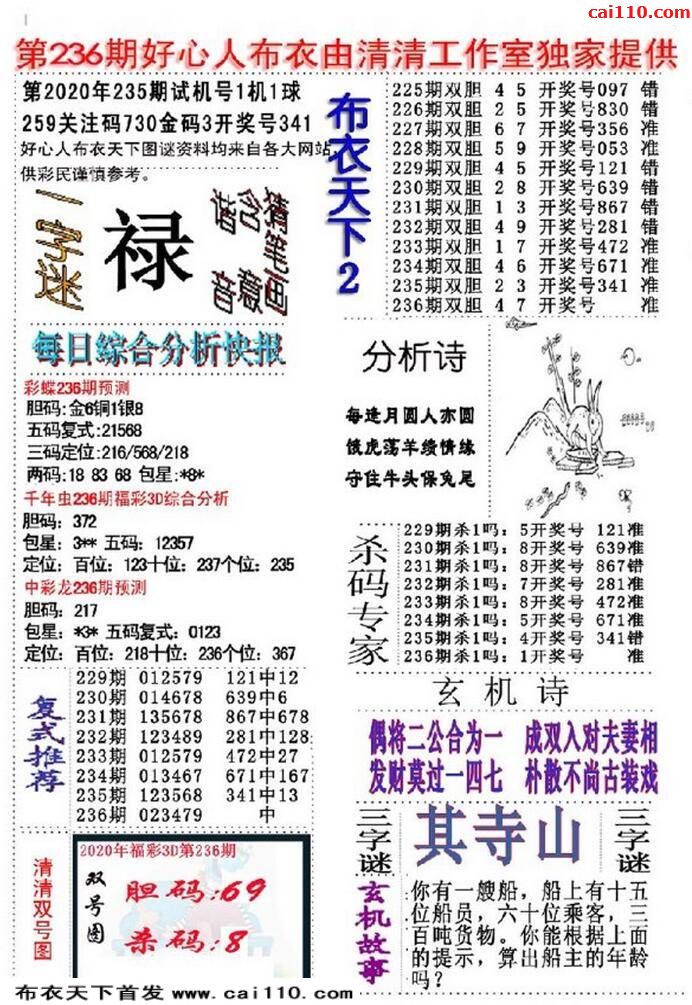 cai110.com
第236期好心人布衣由清清工作室独家提供
第2020年235期试机号1机1球
259关注码730金码3开奖号341
好心人布衣天下图谜资料均来自各大网站,
供彩民谨慎参考。
一字迷
禄
猜笔画
含意
谐音
布衣天下2
225期双胆 4 5 开奖号097 错
226期双胆 2 5 开奖号830 错
227期双胆 6 7 开奖号356 准
228期双胆 5 9 开奖号053 准
229期双胆 4 5 开奖号121 错
230期双胆 2 8 开奖号639 错
231期双胆 1 3 开奖号867 错
232期双胆 4 9 开奖号281 错
233期双胆 1 7 开奖号472 准
234期双胆 4 6 开奖号671 准
235期双胆 2 3 开奖号341 准
236期双胆 4 7 开奖号 准
每日综合分析快报
彩蝶236期预测
胆码:金6铜1银8
五码复式:21568
三码定位:216/568/218
两码:18 83 68 包星:*8*
千年虫236期福彩3D综合分析
胆码: 372
包星: 3** 五码: 12357
定位: 百位: 123十位: 237个位: 235
中彩龙236期预测
胆码: 217
包星: *3* 五码复式: 0123
定位: 百位: 218十位: 236个位: 367
分析诗
每逢月圆人亦圆
饿虎荡羊续情缘
守住牛头保兔尾
杀码专家
229期杀1吗: 5开奖号 121准
230期杀1吗: 8开奖号 639准
231期杀1吗: 8开奖号 867错
232期杀1吗: 7开奖号 281准
233期杀1吗: 8开奖号 472准
234期杀1吗: 5开奖号 671准
235期杀1吗: 4开奖号 341错
236期杀1吗: 1开奖号 准
复式推荐
229期 012579 121中12
230期 014678 639中6
231期 135678 867中678
232期 123489 281中128
233期 012579 472中27
234期 013467 671中167
235期 123568 341中13
236期 023479 中
玄机诗
偶将二公合为一 成双入对夫妻相
发财莫过一四七 朴散不尚古装戏
三字谜
其寺山
三字谜
清清双号图
2020年福彩3D第236期
双号图
胆码:69
杀码:8
玄机故事
你有一艘船，船上有十五
位船员，六十位乘客，三
百吨货物。你能根据上面
的提示，算出船主的年龄
吗?
布衣天下首发 www.cai110.com